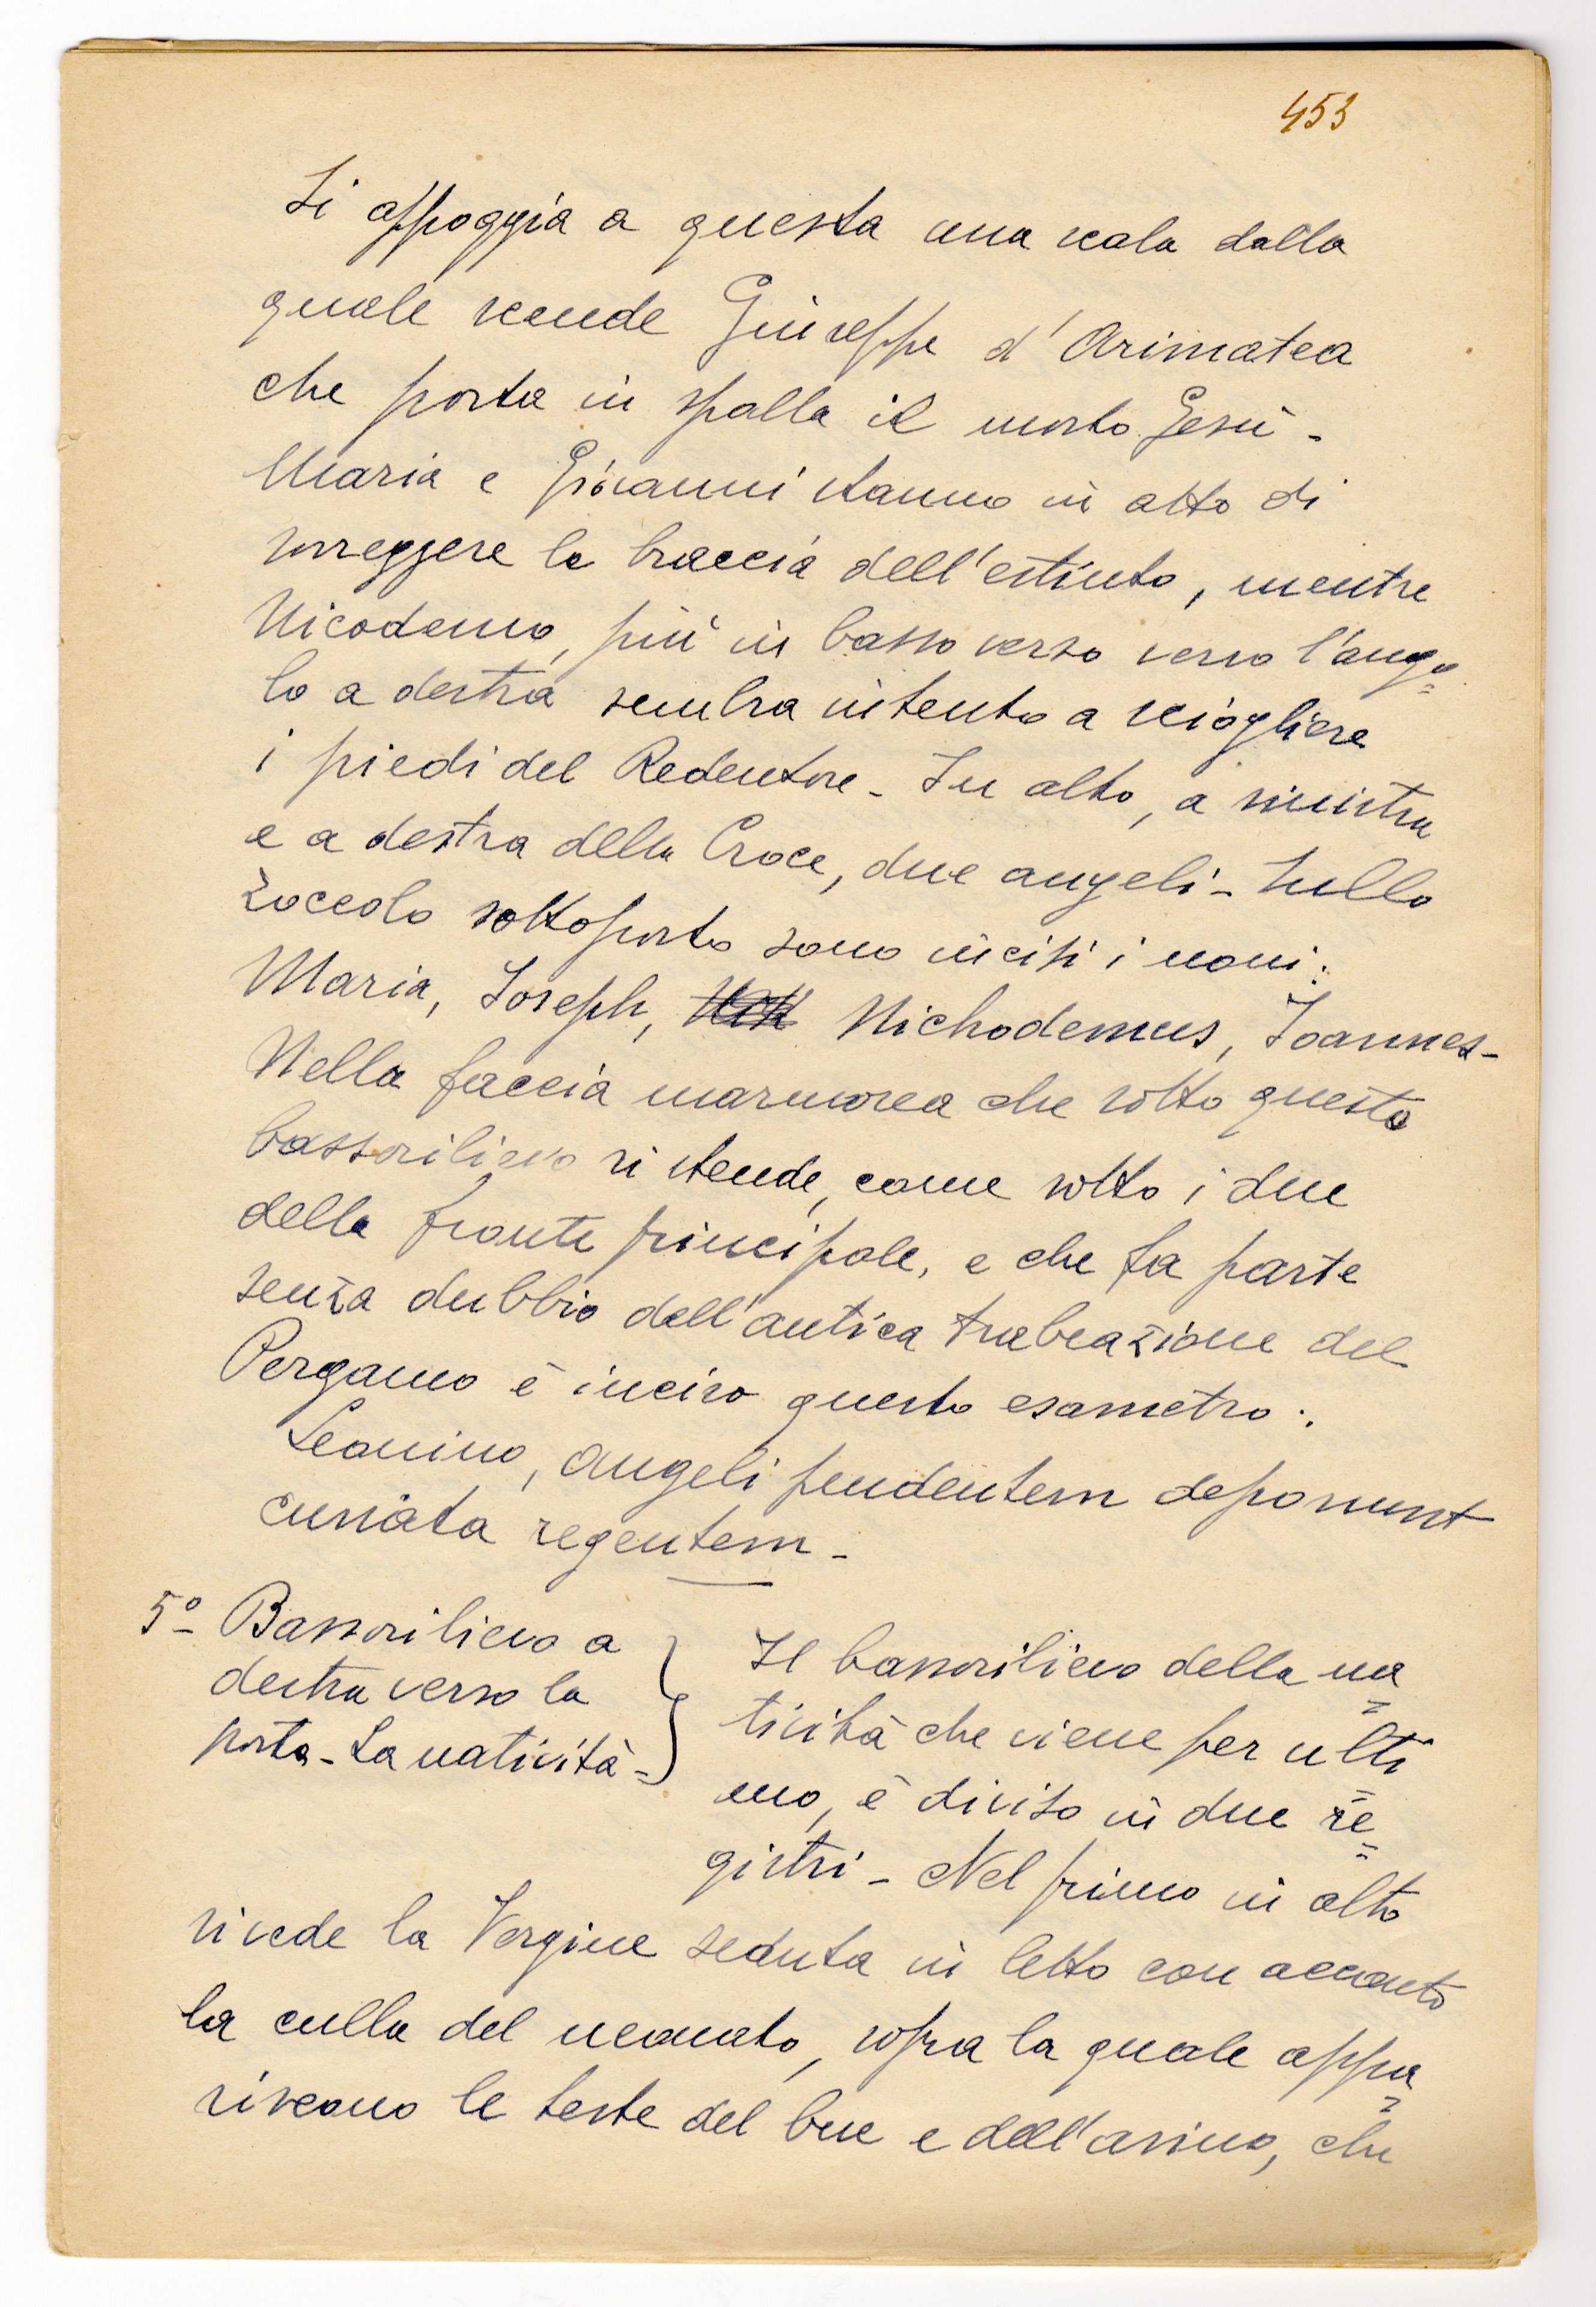 453
Si appoggia a questa una scala dalla
quale scende Giuseppe d'Arimatea
che porta in spalla il morto Gesù -
Maria e Giovanni stanno in atto di
sorreggere le braccia dell'estinto, mentre
Nicodemo, più in basso verso verso l'ango=
lo a destra sembra intento a sciogliere
i piedi del Redentore - In alto, a sinistra
e a destra della Croce, due angeli - Sullo
zoccolo sottoposto sono incisi i nomi:
Maria, Joseph, Nichodemus, Joannes -
Nella faccia marmorea che sotto questo
bassorilievo si stende, come sotto i due
della fronte principale, e che fa parte
senza dubbio dell'antica trabeazione del
Pergamo è inciso questo esametro:
Leonino, angeli pendentem deponunt
cuniata regentem -
5º- Bassorilievo a
destra verso la
porta - La natività -
Il bassorilievo della na=
tività che viene per ulti=
mo, è diviso in due re=
gistri - Nel primo in alto
si vede la Vergine seduta in letto con accanto
la culla del neonato, sopra la quale appa=
riscono le teste del bue e dell'asino, che